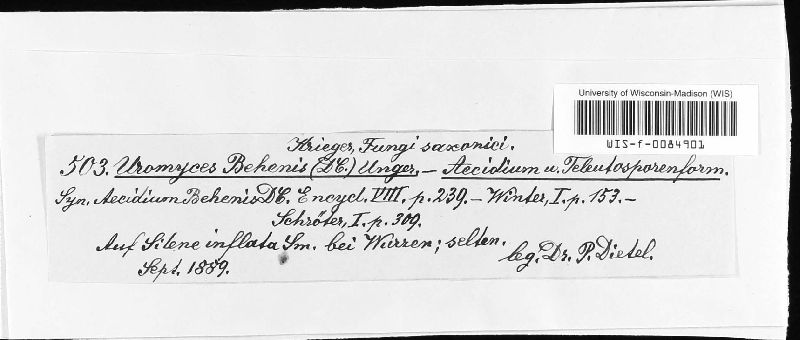 University of Wisconsin-Madison (WIS)
WIS-f-0084901
Krieger, Fungi saxonici.
503. Uromyces Behenis (DC.) Unger. – Aecidium u. Teleutosporenform.
Syn. Aecidium Behenis DC. Encycl. VIII. p. 239. – Winter, I. p. 153. –
Schröter, I. p. 309.
Auf Silene inflata Sm. bei Wurzen; selten.
Sept. 1889.
leg. Dr. P. Dietel.